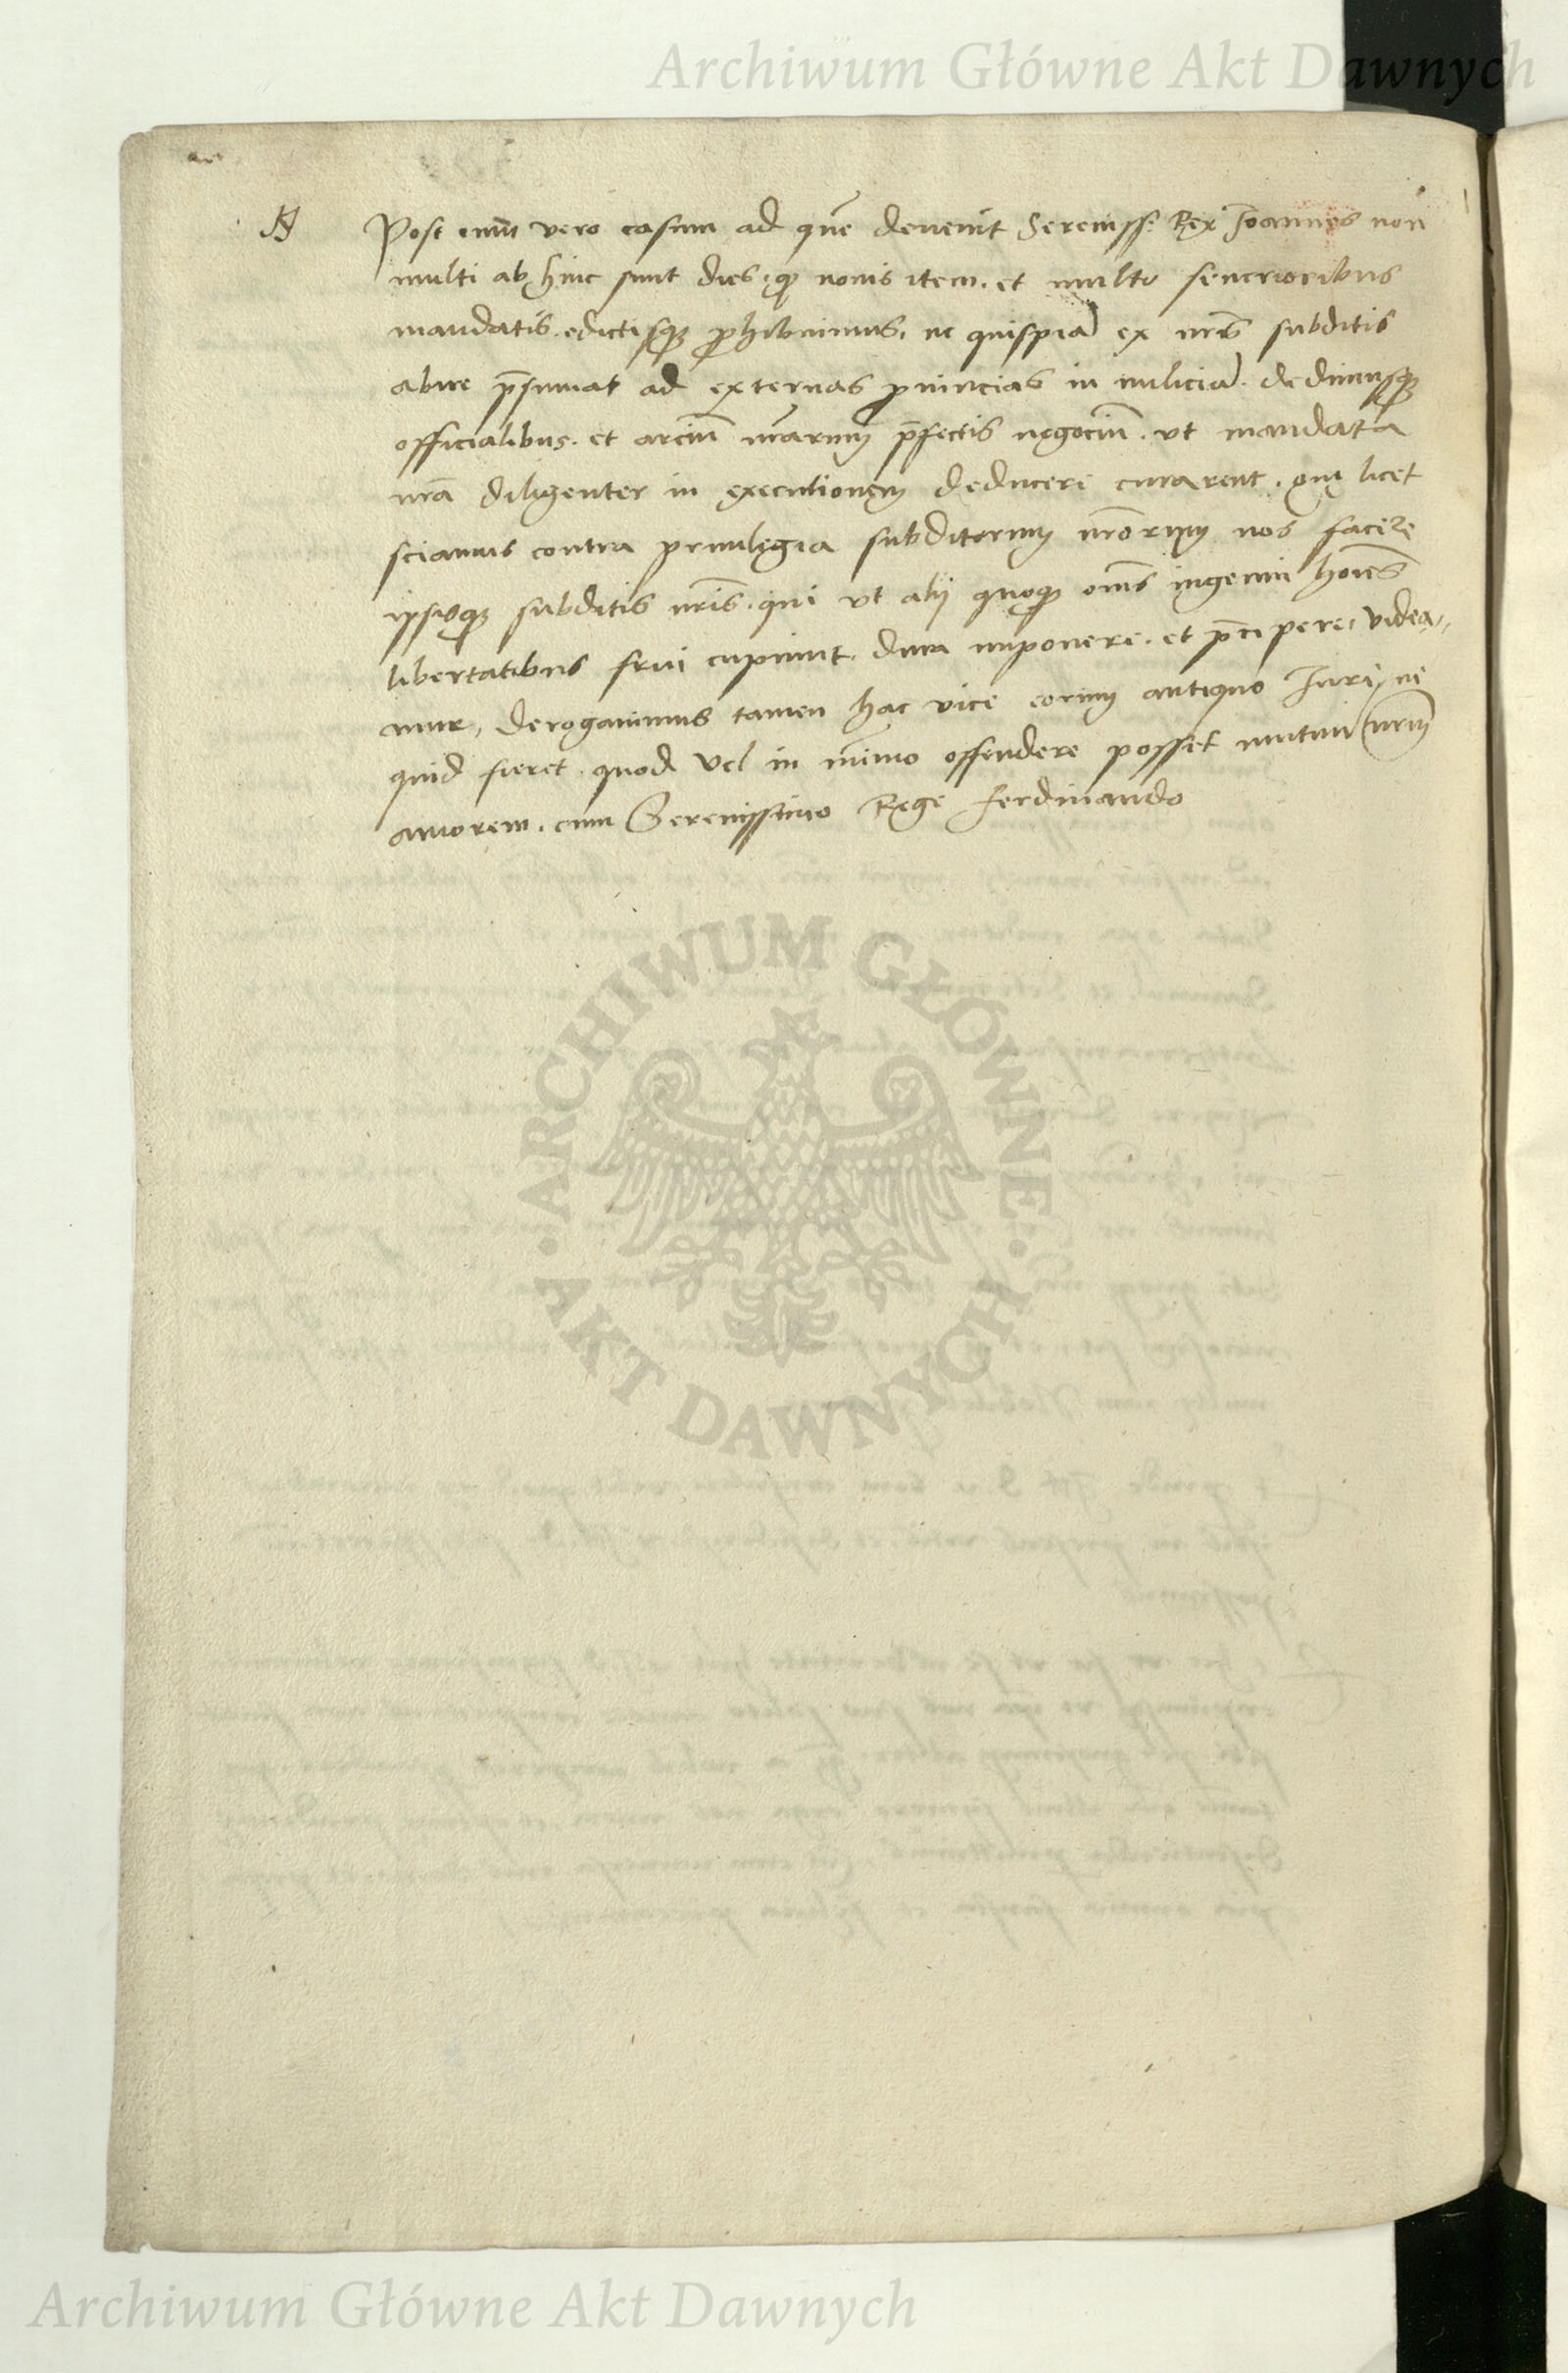 Archiwum Główne Akt Dawnych
Post eum vero casum ad quē devenit Sereniss: Rex Joannes non
multi ab hinc sunt dies, novis item, et multo severioribus
mandatis, edictisque prohibuimus, ne quispiā ex nr̄is subditis
abire p̄sumat ad externas provincias in miliciā. dedimusque
officialibus, et arcium nr̄arum p̄fectis negocium, vt mandata
nr̄a diligenter in executionem deducere curarent, licet
sciamus contra privilegia subditorum nr̄orum nos facere
ipsisque subditis nr̄is, qui vt alij quoque om̄s ingenui hoīes
libertatibus frui cupiunt, dura imponere, et videa„
mur, derogavimus tamen hac vice eorum antiquo Juri, ne
quid fieret, quod vel in minimo offendere posset mutuū nr̄um
amorem, cum Serenissimo Rege Ferdinando
ARCHIWUM GŁÓWNE
AKT DAWNYCH
Archiwum Główne Akt Dawnych